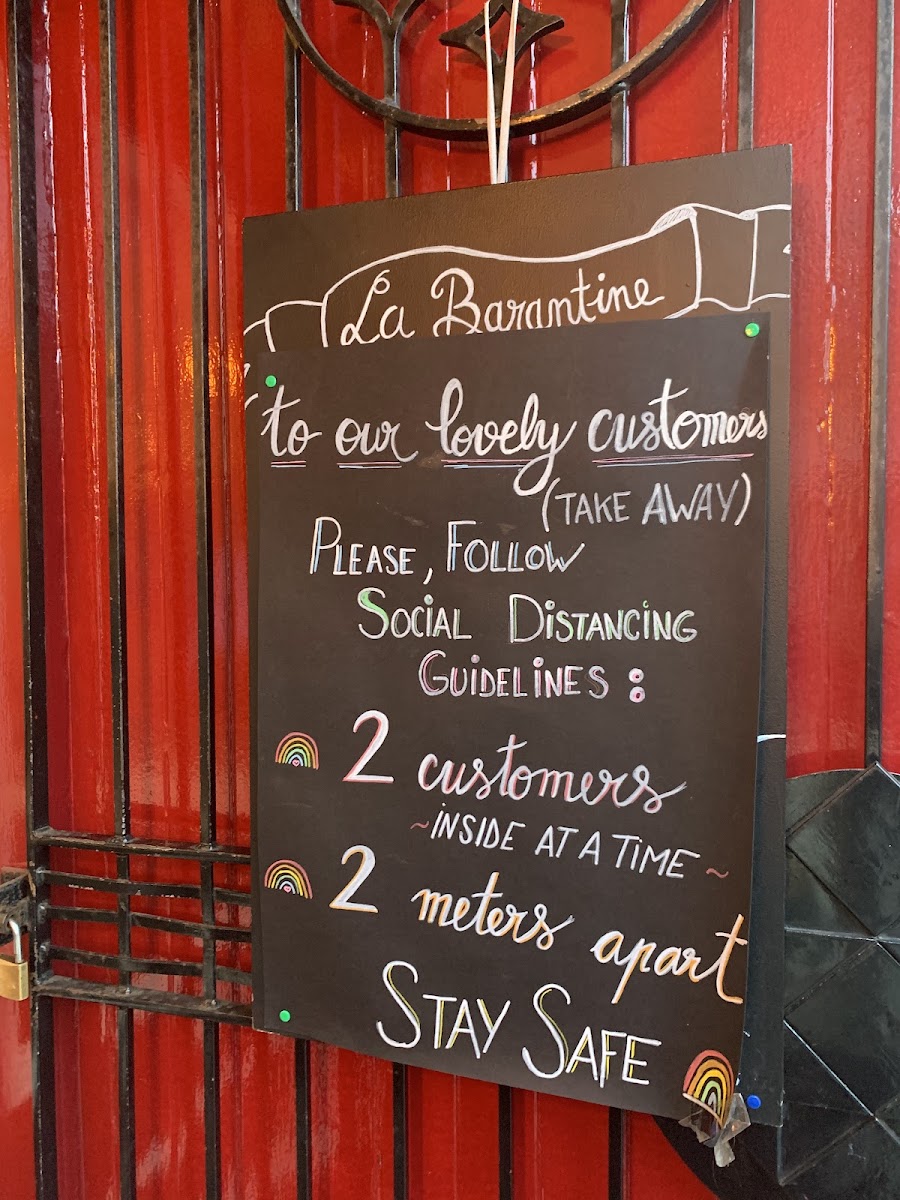 La Barantine
to our lovely customers
(TAKE AWAY)
PLEASE, FOLLOW
SOCIAL DISTANCING
GUIDELINES :
2 customers
~INSIDE AT A TIME~
2 meters apart
STAY SAFE